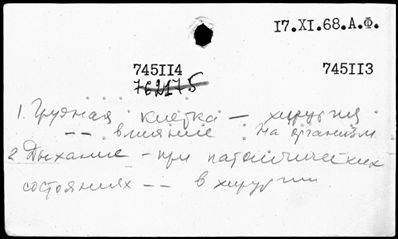 17.XI.68.А.Ф.
745II4 745II3
762175
1. Грудная клетка – хирургия
– – влияние на организм
2. Дыхание – при патологических
состояниях – – в хирургии